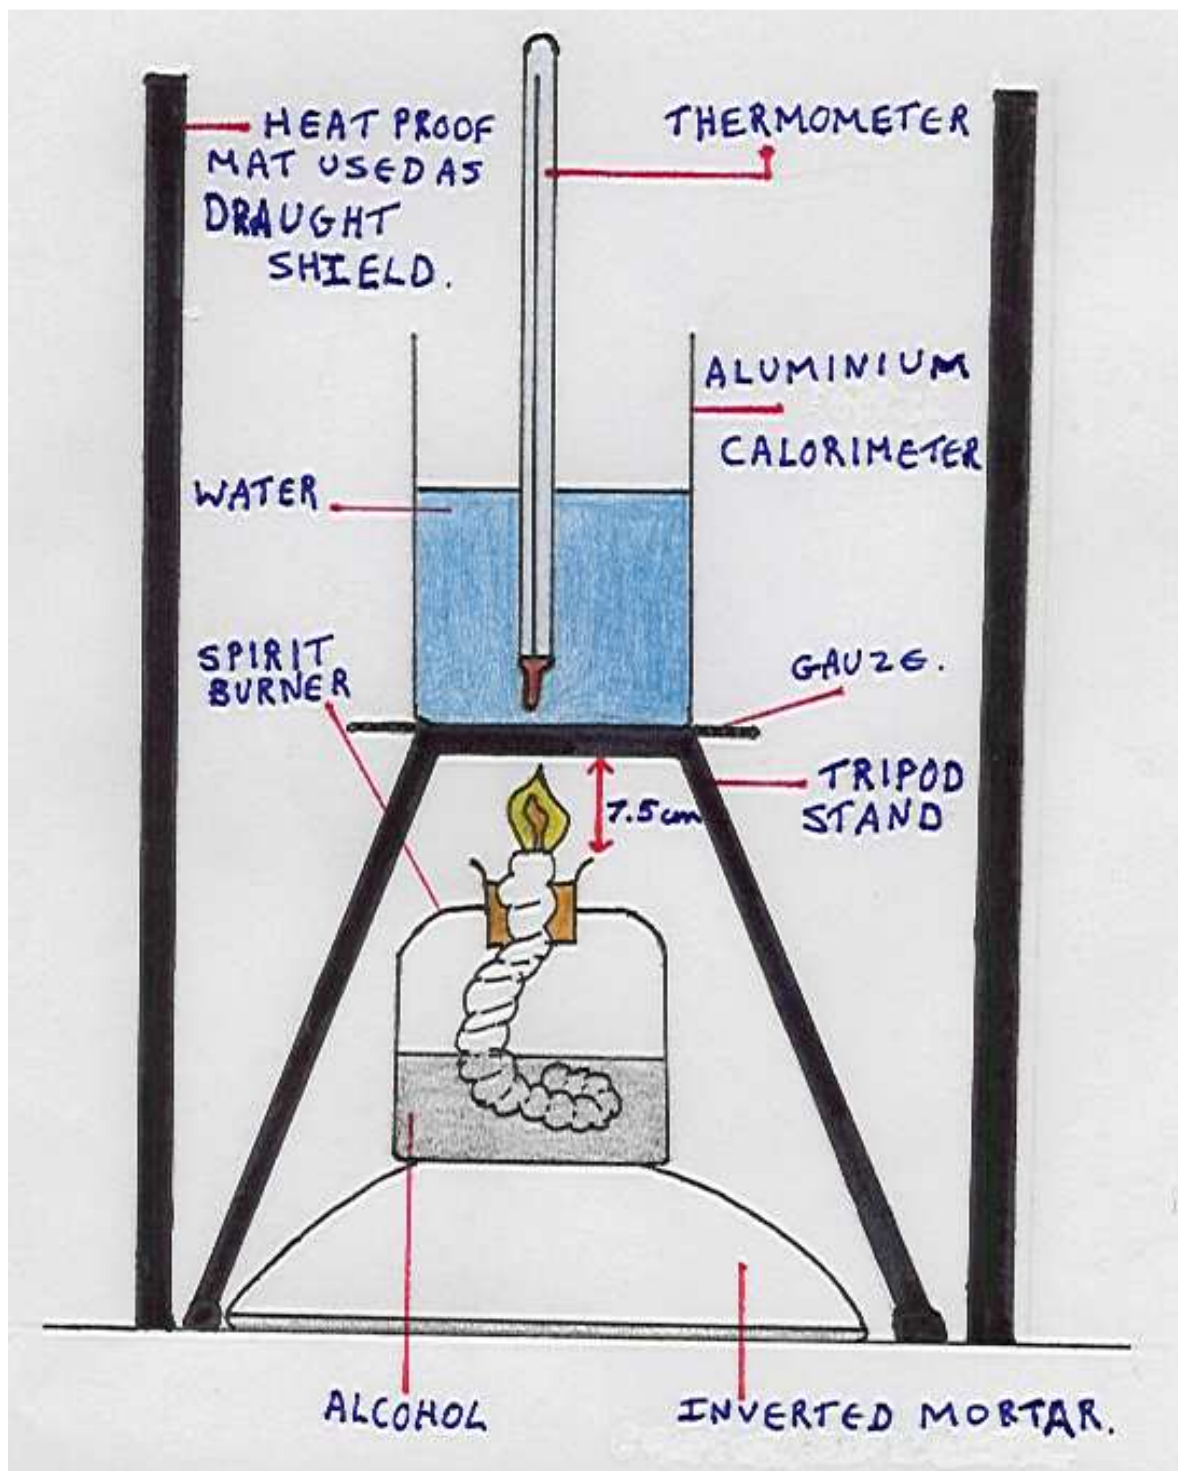 HEAT PROOF
MAT USED AS
DRAUGHT
SHIELD.
THERMOMETER
ALUMINIUM
CALORIMETER
WATER
SPIRIT
BURNER
GAUZE.
TRIPOD
STAND
7.5cm
ALCOHOL
INVERTED MORTAR.